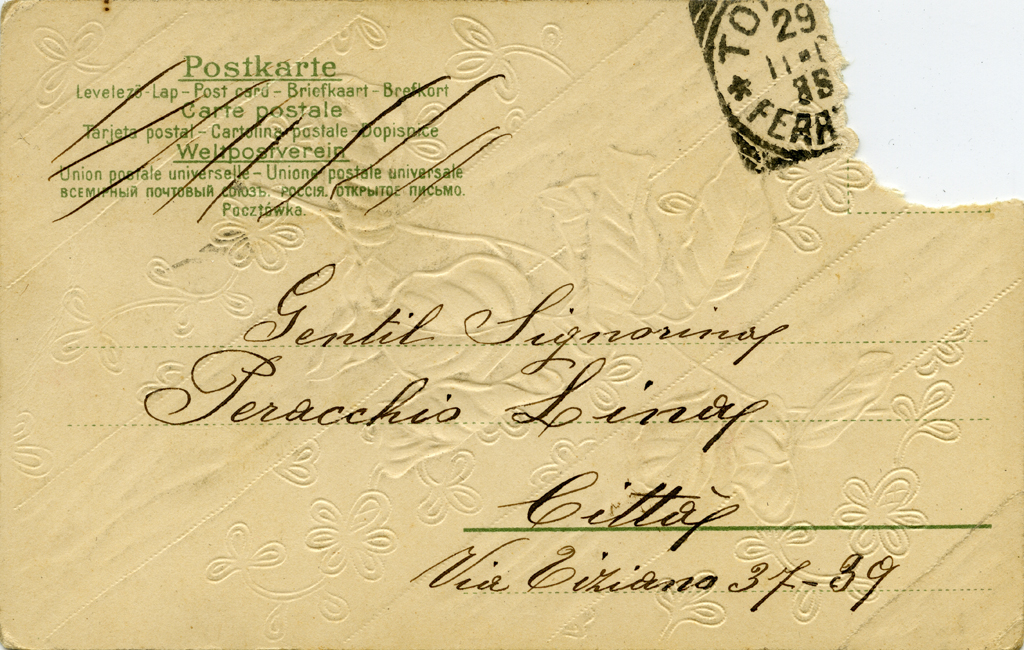 Postkarte
Levelező-Lap – Post card – Briefkaart – Brefkort
Carte postale
Tarjeta postal – Cartolina postale – Dopisnice
Weltpostverein
Union postale universelle – Unione postale universale
ВСЕМІРНЫЙ ПОЧТОВЫЙ СОЮЗЪ. РОССІЯ. ОТКРЫТОЕ ПИСЬМО.
Pocztówka.
29
FERR
Gentil Signorina
Peracchio Lina
Città
Via Tiziano 37-39